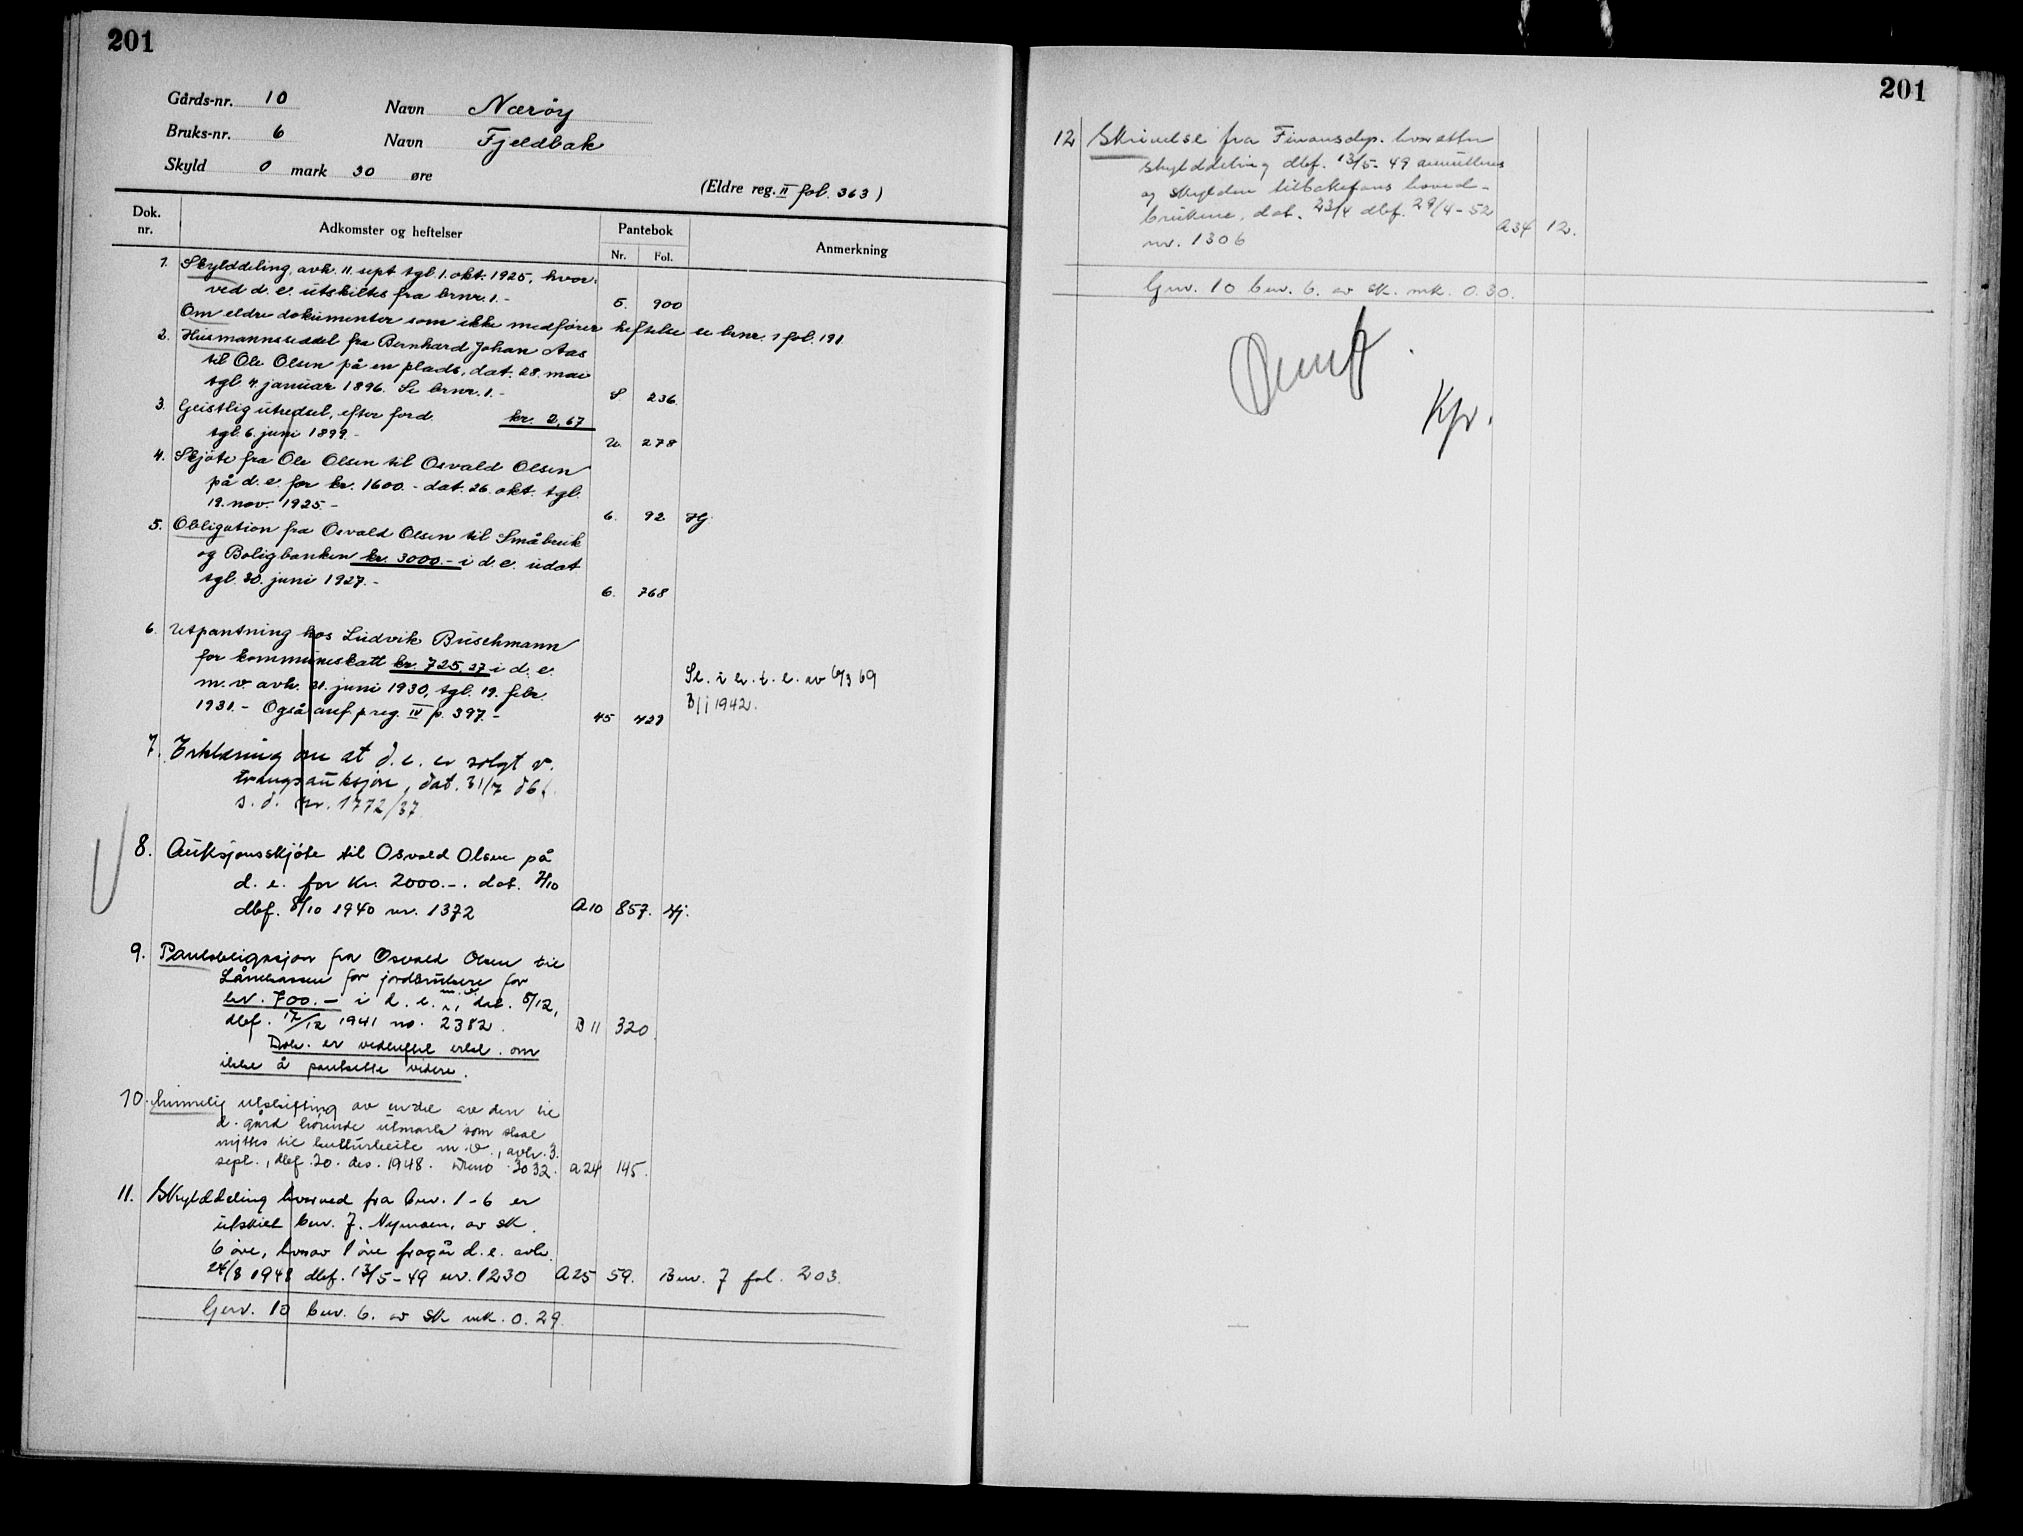 201
Gårds-nr. 10 Navn Nærøy
Bruks-nr. 6 Navn Fjeldbak
Skyld 0 mark 30 øre
(Eldre reg. II fol. 363)
Dok. nr. Adkomster og heftelser Pantebok Nr. Fol. Anmerkning
1. Skylddeling, avh. 11. sept. tgl. 1. okt. 1925, hvor-
ved d. e. utskiltes fra brnr. 1. - 5. 900
Om eldre dokumenter som ikke medfører heftelse se brnr. 1 fol. 191
2. Husmannsseddel fra Bernhard Johan Aas
til Ole Olsen på en plads, dat. 28. mai
tgl. 4. januar 1896. Se brnr. 1. - S. 236
3. Geistlig utredsel, efter ford. kr. 2,67
tgl. 6. juni 1899. - U. 278
4. Skjøte fra Ole Olsen til Osvald Olsen
på d. e. for kr. 1600. - dat. 26. okt. tgl.
19. nov. 1925. - 6. 92 Hj
5. Obligation fra Osvald Olsen til Småbruk
og Boligbanken kr. 3000. - i d. e. udat.
tgl. 30. juni 1927. - 6. 768
6. Utpantning hos Ludvik Buschmann
for kommuneskatt kr. 725,27 i d. e.
m. v. avh. 21. juni 1930, tgl. 19. febr.
1931. - Også anf. p. reg. IV p. 397. - 45 729
Sl. i h. t. l. av 6/3 69
3/1 1942.
7. Erklæring om at d. e. er solgt v.
tvangsauksjon, dat. 31/7 dbf.
s. d. nr. 1772/37
8. Auksjonsskjøte til Osvald Olsen på
d. e. for Kr. 2000. -. dat. 7/10
dbf. 8/10 1940 nr. 1372 A10 857. Hj.
9. Panteobligasjon fra Osvald Olsen til
Lånekassen for jordbrukere for
kr. 700. - i d. e. m. v., dat. 5/12,
dbf. 17/12 1941 no. 2382. B 11 320
Dok. er vedheftet erkl. om
ikke å pantsette videre.
10. Minnelig utskifting av endel av den til
d. gård hørende utmark som skal
nyttes til kulturbeite m. v., avh. 3.
sept., dbf. 20. des. 1948. 3032. A24 145.
11. Skylddeling hvorved fra bnr. 1-6 er
utskilt bnr. 7. Nymoen, av sk.
6 øre, hvorav 1 øre fragår d. e. avh.
24/8 1948 dbf. 13/5-49 nr. 1230 A25 59. Bnr. 7 fol. 203.
Gnr. 10 bnr. 6. av sk mk. 0.29.
201
12 Skrivelse fra Finansdep. hvoretter
skylddeling dbf. 13/5-49 annulleres
og skylden tilbakeføres hoved-
brukene, dat. 23/4 dbf. 29/4-52
nr. 1306 A34 12.
Gnr. 10 bnr. 6. av sk. mk. 0.30.
Kfr.